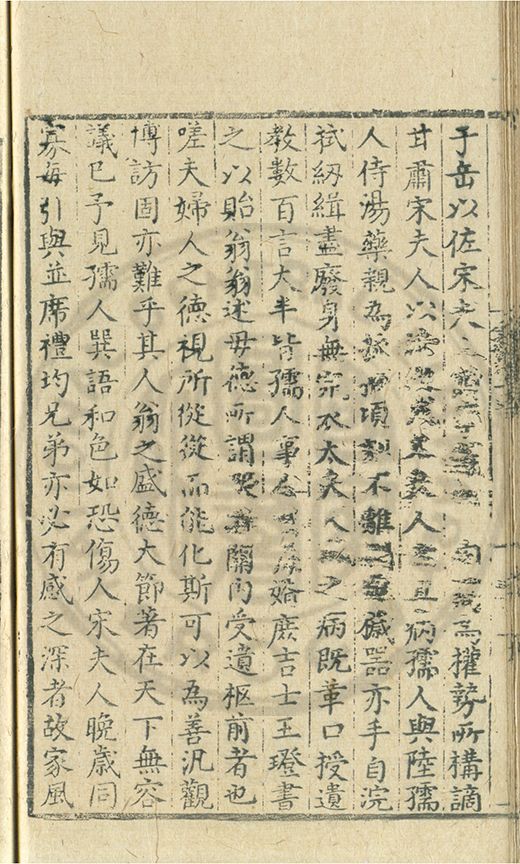 于岳以佐宋夫為權勢所構謫
甘肅宋夫人以人且病孺人與陸孺
人侍湯藥親為頃刻不離器亦手自浣
拭紉緝盡廢身無完衣太夫人之病既革口授遺
教數百言大半皆孺人事婚庶吉士王璒書
之以貽翁翁述毋德所謂闗內受遺柩前者也
嗟夫婦人之德視所從從而能化斯可以為善汎觀
博訪固亦難乎其人翁之盛德大節著在天下無容
議巳予見孺人巽語和色如恐傷人宋夫人晚歲同
寡每引與並席禮均兄弟亦必有感之深者故家風